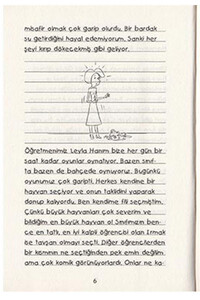 misafir olmak çok garip olurdu. Bir bardak
su getirdiğini hayal edemiyorum. Sanki her
şeyi kırıp dökecekmiş gibi geliyor.
Öğretmenimiz Leyla Hanım bize her gün bir
saat kadar oyunlar oynatıyor. Bazen sınıf-
ta bazen de bahçede oynuyoruz. Bugünkü
oyunumuz çok garipti. Herkes kendine bir
hayvan seçiyor ve onun taklidini yaparak
donup kalıyordu. Ben kendime fili seçmiştim.
Çünkü büyük hayvanları çok severim ve
bildiğim en büyük hayvan o! Sınıfımızın ben-
ce en tatlı, en iyi kalpli öğrencisi olan Irmak
ise tavşan olmayı seçti. Diğer öğrencilerden
bir kısmının ne seçtiğinden pek emin değilim
ama çok komik görünüyorlardı. Onlar ne ka-
6